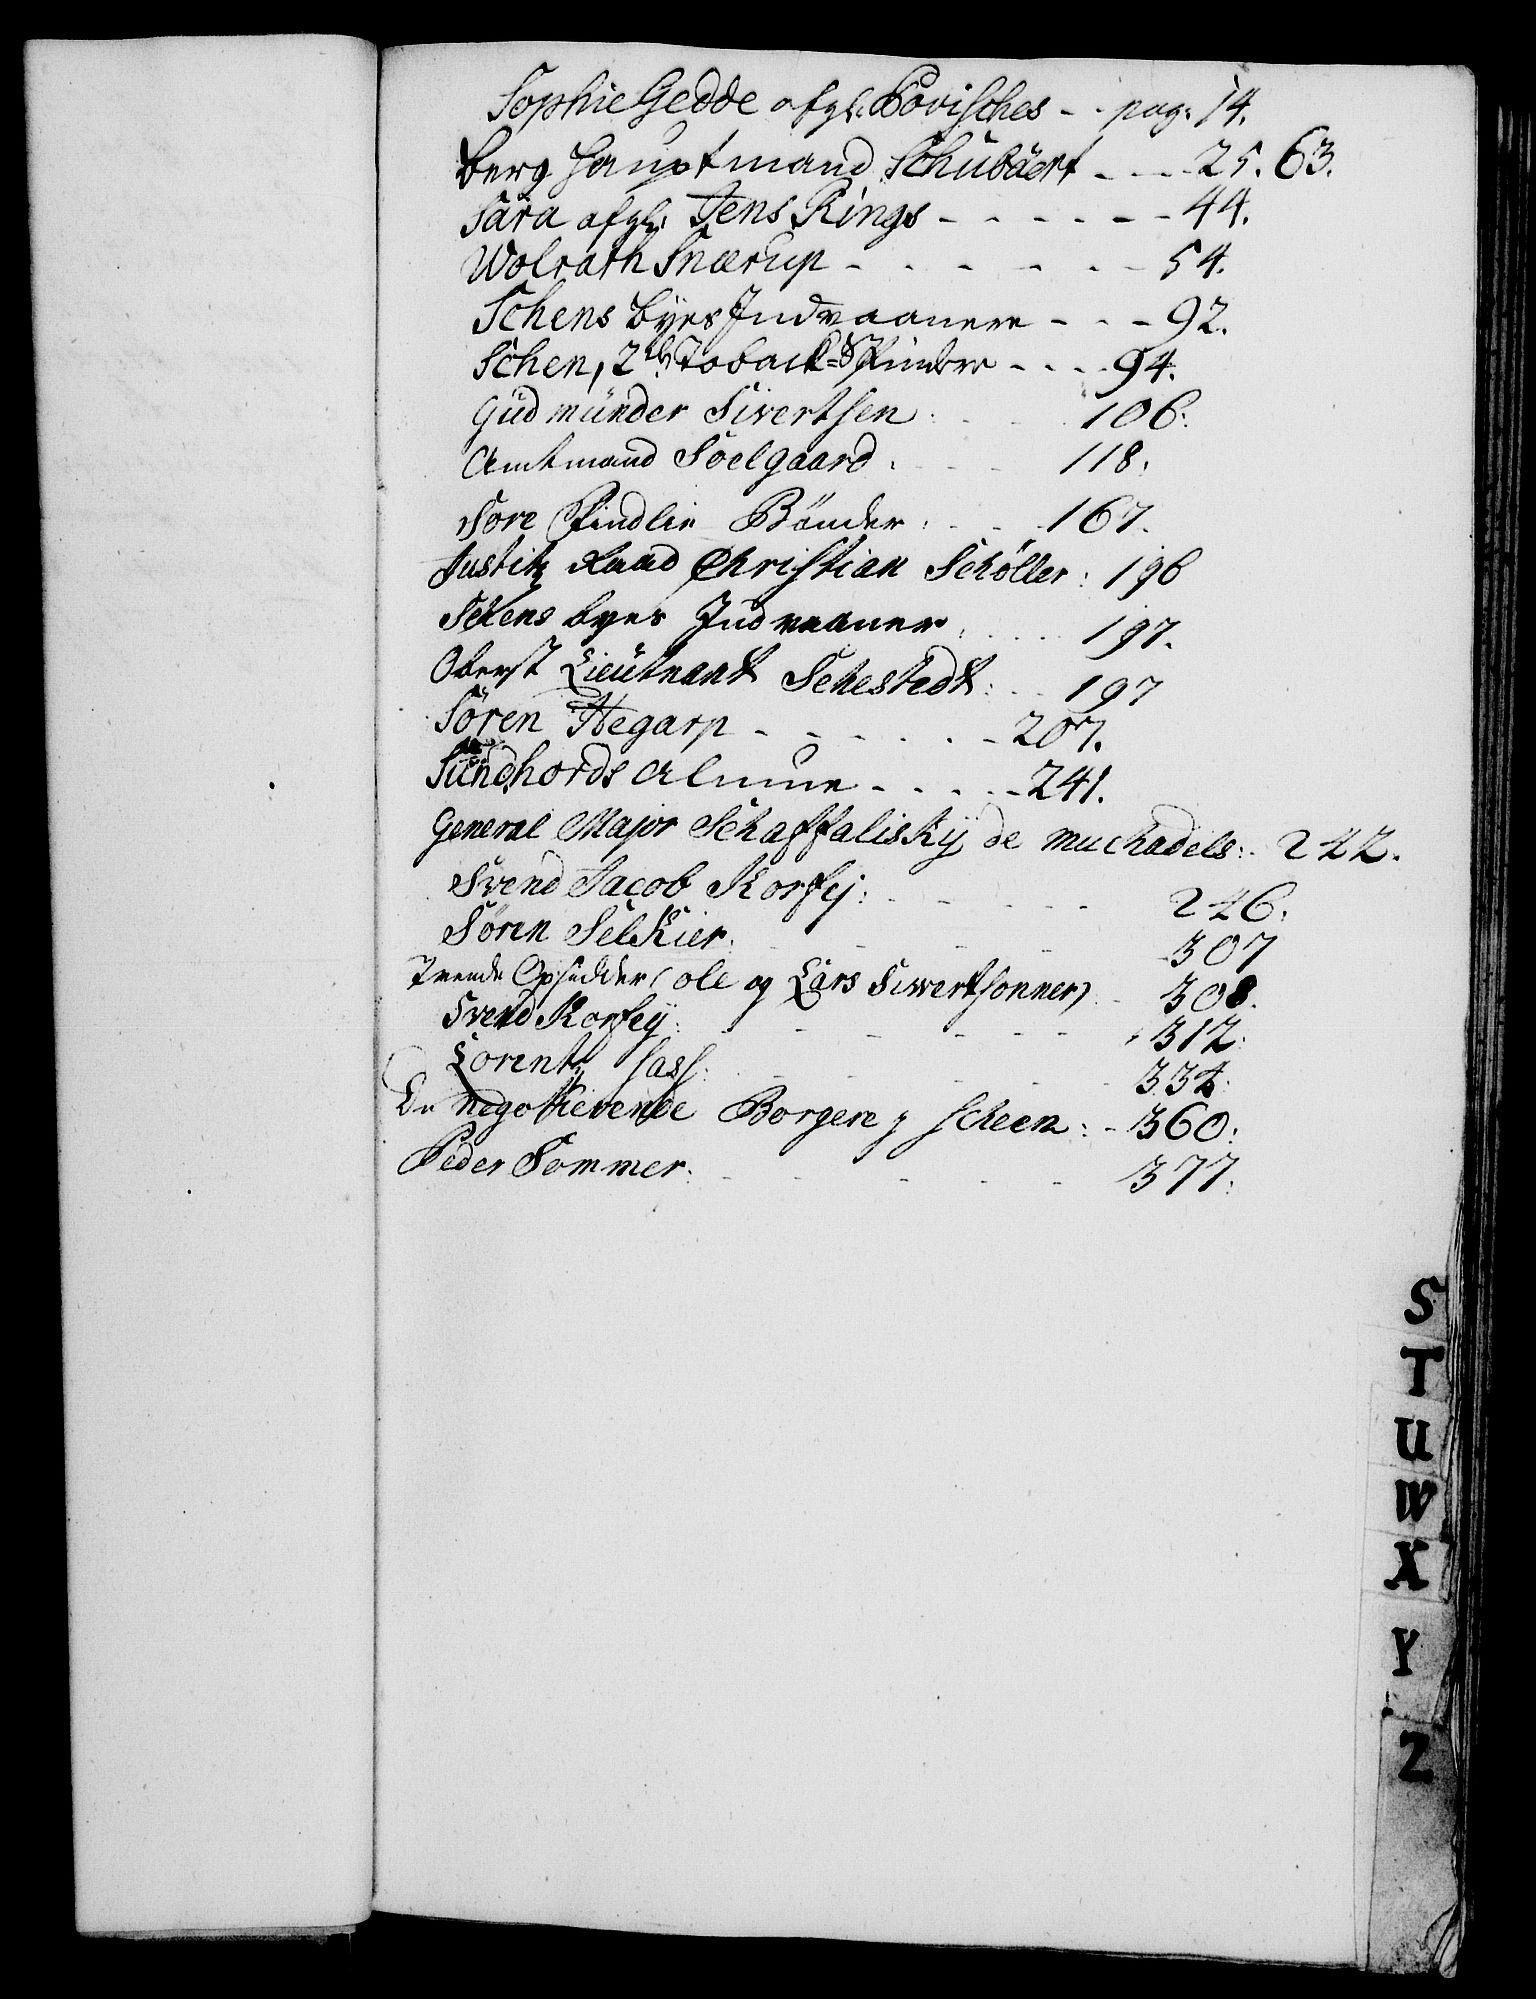 Sophie Gedde afg: Povisches - - pag: 14.
Berg Hauptmand Schubdert - - - 25. 63.
Sara afgl: Jens Rings - - - - - - 44.
Wolrath Snærup - - - - - - 54.
Schens Byes Indvaanere - - - 92.
Schen, 2de Toback-Spindere - - - - 94.
Gudmünder Sivertsen: - - 106:
Amtmand Söelgaard. - - - 118.
Sore Findlie Bönder: - - 167.
Justitz Raad Christian Schöller: 196
Schens byes Indvaaner. - - - 197.
Oberst Lieütnant Sehestedt: - - 197
Sören Hegarp - - - - - - 207.
Sündhords Almue - - - - - 241.
General Major Schaffalisky de muchadels: - 242.
Svend Jacob Korfej: - - - - 246.
Sören Selkier. - - - - 307
Tvende Opsidder (ole og Lars Siwertsønner) - 308.
Svend Korfey: - - - - - 312:
Lorentz Sass: - - - - 334:
De negotierende Borgere z Scheen: - 360:
Peder Sommer: - - - - - 377:
S
T
U
W
X
Y
Z